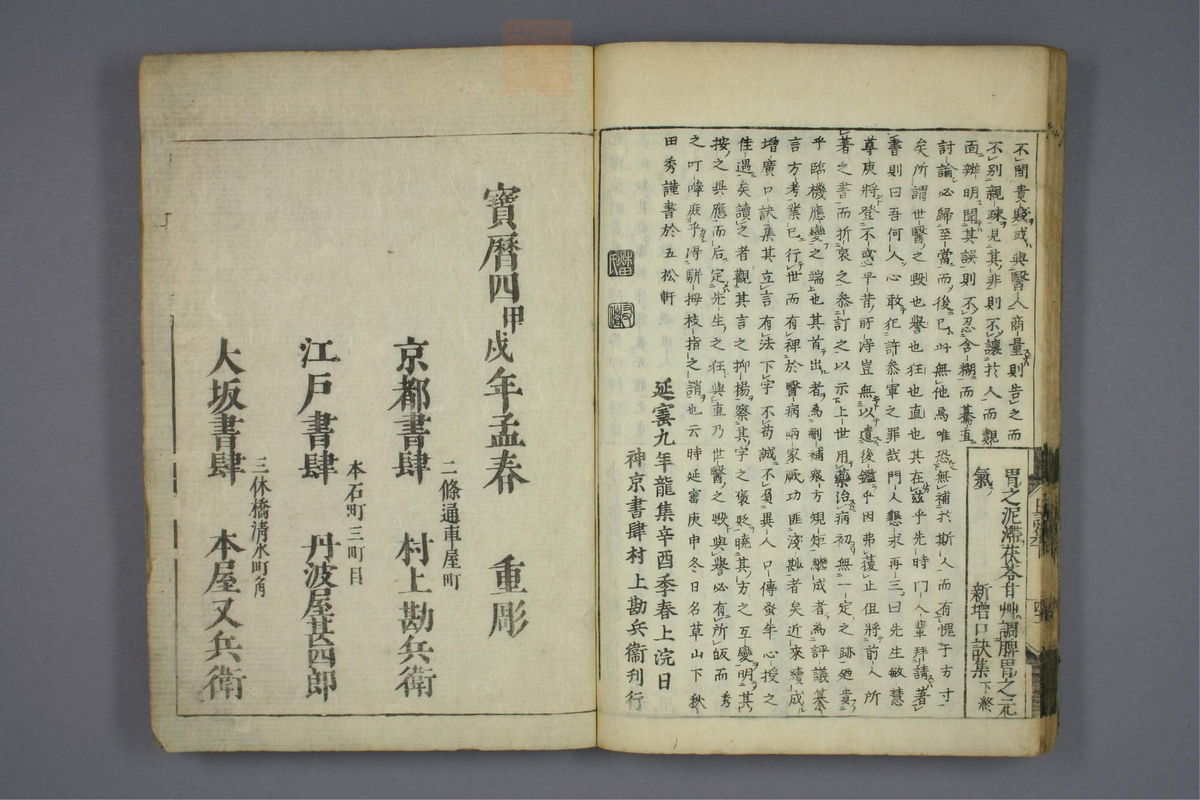 胃之泥滯茯苓甘艸調脾胃之元
氣
新增口訣集下終
不問貴賤或與醫人商量則告之而
不別親疎見其非則不讓於人而覿
面辨明聞其誤則不忍含糊而驀直
討論必歸至當而後已此無他為唯恐無補於斯人而有愧于方寸
矣所謂世醫之毀也譽也狂也直也其在茲乎先時門人輩拜請著
書則曰吾何人心敢犯許參軍之罪哉門人懇求再三曰先生敏慧
尊庚將登不惑平昔所得豈無以遺後鑑乎因弗獲止但將前人所
著之書而折衷之參訂之以示上世用藥治病初無一定之跡廼貴
乎臨機應變之端也其首出者為刪補衆方規矩繼成者為評議纂
言方考業已行世而有裨於醫病兩家厥功匪淺尠者矣近來續成
增廣口訣集其立言有法下字不苟誠不負異人口傳發年心授之
佳遇矣讀之者觀其言之抑揚察其字之褒貶曉其方之互變明其
按之與應而后定先生之狂與直乃世之毀與譽必有所皈而秀
之叮嚀庶乎得駢拇枝指之誚也云時延寳庚申冬日名草山下秋
田秀謹書於五松軒
延寳九年龍集辛酉季春上浣日
神京書肆村上勘兵衞刊行
寶曆四甲戌年孟春 重彫
二條通車屋町
京都書肆 村上勘兵衞
本石町三町目
江戶書肆 丹波屋甚四郎
三休橋清水町角
大坂書肆 本屋又兵衞